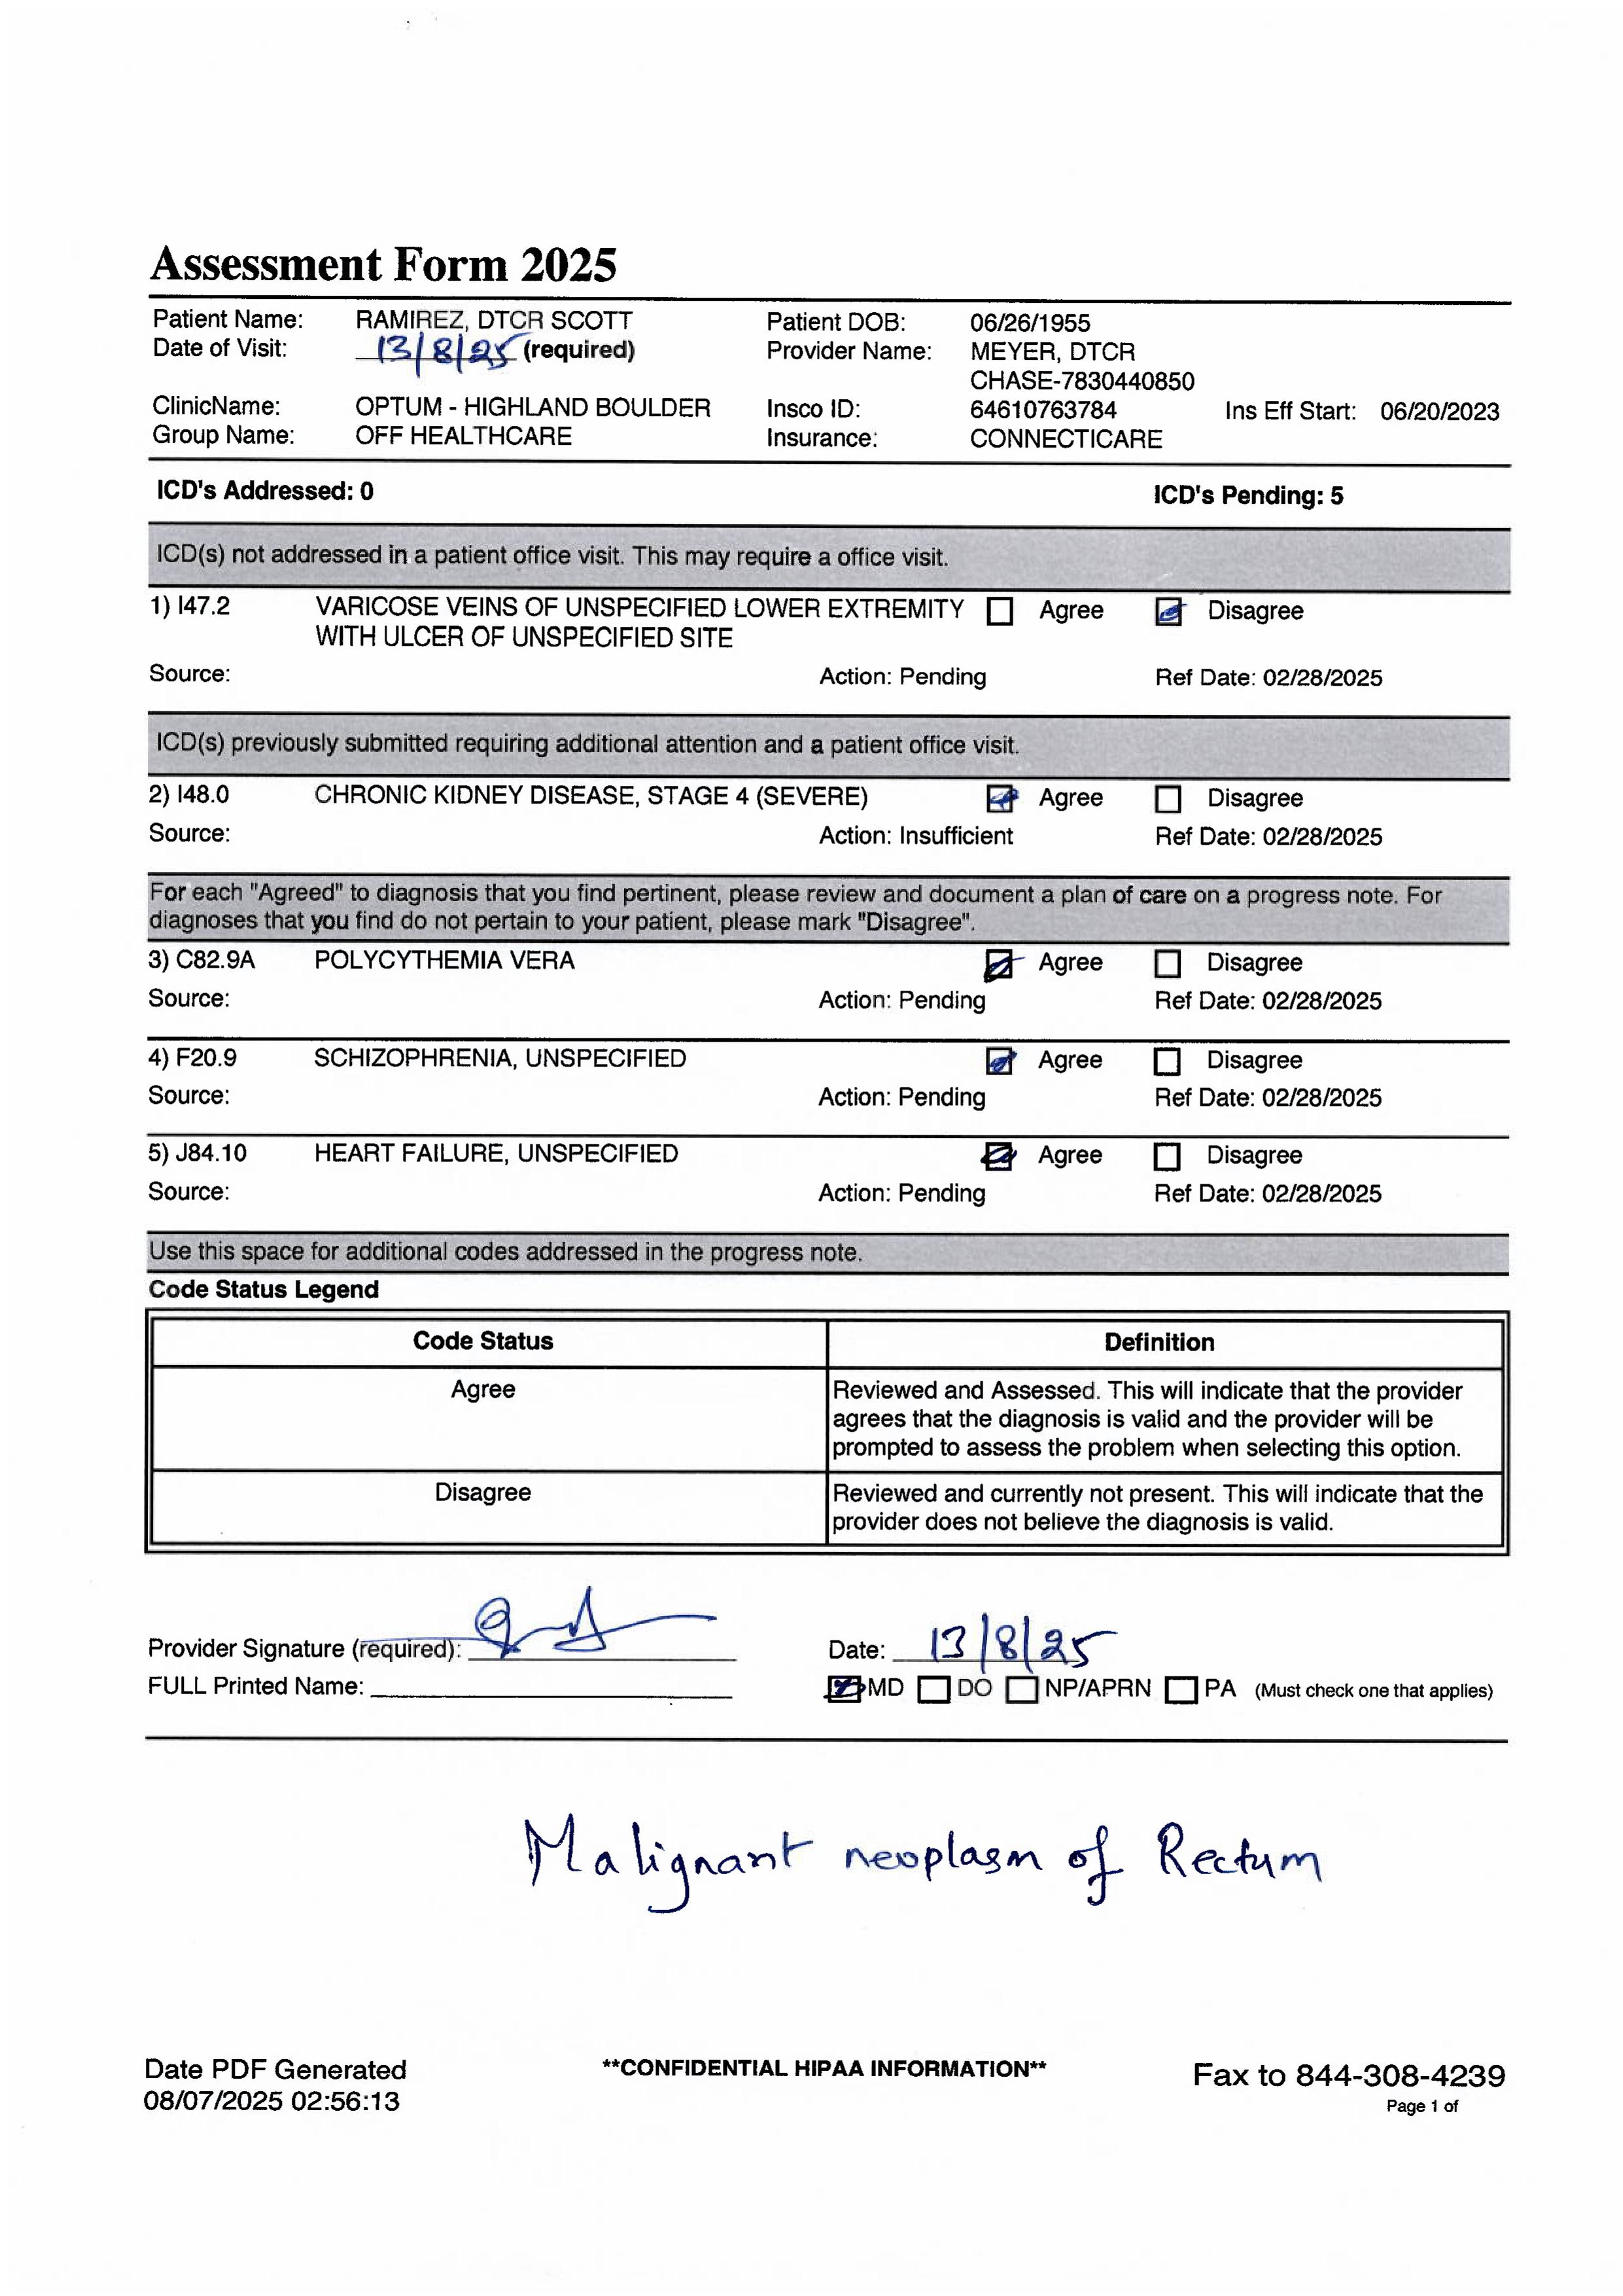 Assessment Form 2025
Patient Name: RAMIREZ, DTCR SCOTT Patient DOB: 06/26/1955
Date of Visit: 13/8/25 (required) Provider Name: MEYER, DTCR
CHASE-7830440850
ClinicName: OPTUM - HIGHLAND BOULDER Insco ID: 64610763784 Ins Eff Start: 06/20/2023
Group Name: OFF HEALTHCARE Insurance: CONNECTICARE
ICD's Addressed: 0 ICD's Pending: 5
ICD(s) not addressed in a patient office visit. This may require a office visit.
1) I47.2 VARICOSE VEINS OF UNSPECIFIED LOWER EXTREMITY Agree Disagree
WITH ULCER OF UNSPECIFIED SITE
Source: Action: Pending Ref Date: 02/28/2025
ICD(s) previously submitted requiring additional attention and a patient office visit.
2) I48.0 CHRONIC KIDNEY DISEASE, STAGE 4 (SEVERE) Agree Disagree
Source: Action: Insufficient Ref Date: 02/28/2025
For each "Agreed" to diagnosis that you find pertinent, please review and document a plan of care on a progress note. For
diagnoses that you find do not pertain to your patient, please mark "Disagree".
3) C82.9A POLYCYTHEMIA VERA Agree Disagree
Source: Action: Pending Ref Date: 02/28/2025
4) F20.9 SCHIZOPHRENIA, UNSPECIFIED Agree Disagree
Source: Action: Pending Ref Date: 02/28/2025
5) J84.10 HEART FAILURE, UNSPECIFIED Agree Disagree
Source: Action: Pending Ref Date: 02/28/2025
Use this space for additional codes addressed in the progress note.
Code Status Legend
Code Status Definition
Agree Reviewed and Assessed. This will indicate that the provider
agrees that the diagnosis is valid and the provider will be
prompted to assess the problem when selecting this option.
Disagree Reviewed and currently not present. This will indicate that the
provider does not believe the diagnosis is valid.
Provider Signature (required): Date: 13/8/25
FULL Printed Name: MD DO NP/APRN PA (Must check one that applies)
Malignant neoplasm of Rectum
Date PDF Generated **CONFIDENTIAL HIPAA INFORMATION** Fax to 844-308-4239
08/07/2025 02:56:13 Page 1 of